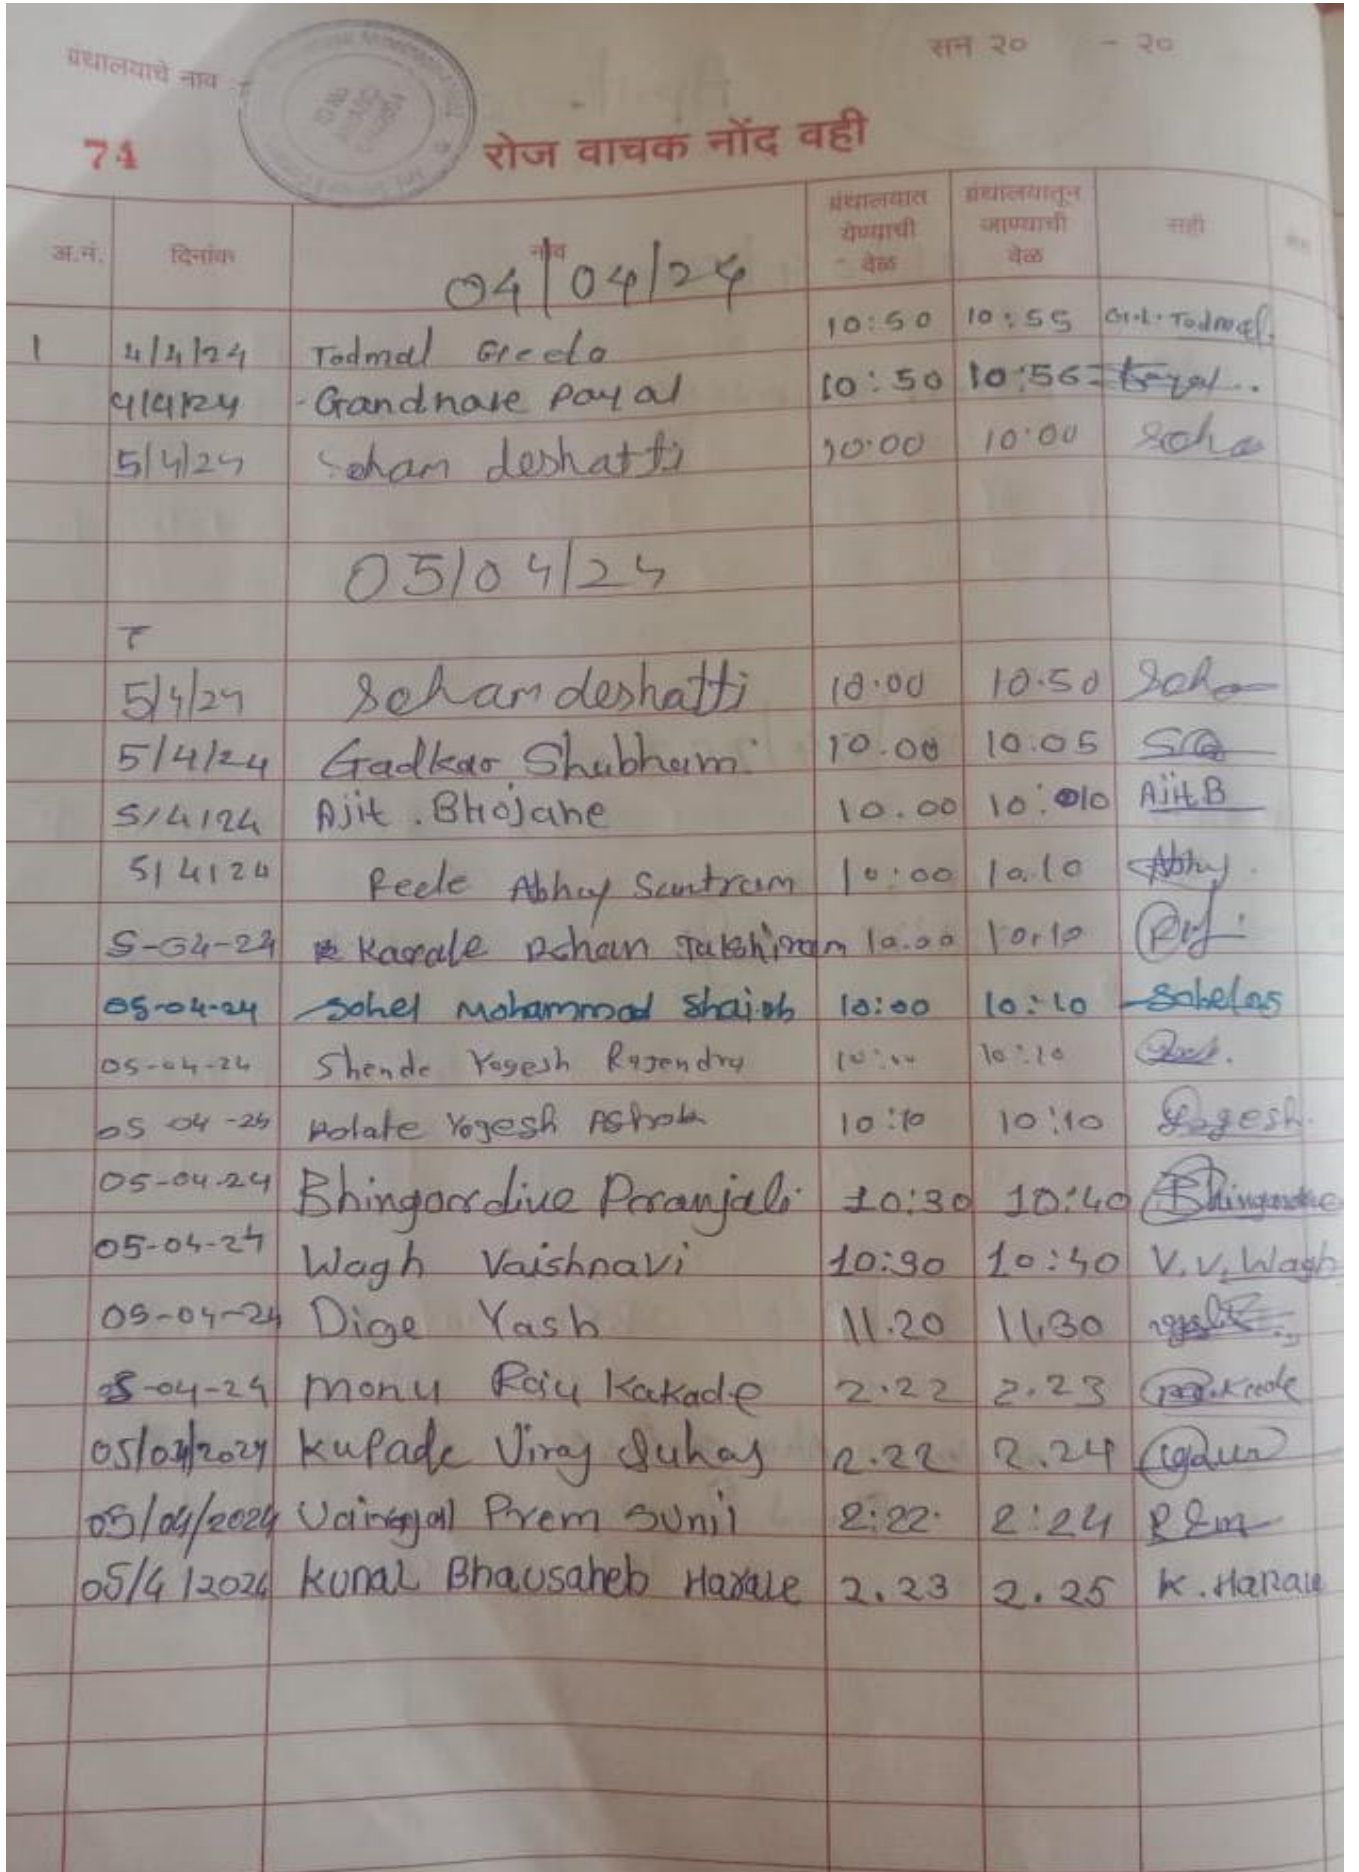 ग्रंथालयाचे नाव : सन २० - २०
74 रोज वाचक नोंद वही
अ.नं. दिनांक नाव ग्रंथालयात येण्याची वेळ ग्रंथालयातून जाण्याची वेळ सही
04/04/24
1 4/4/24 Todmal Geeta 10:50 10:55 G.L. Todmal.
4/4/24 Gandhare Payal 10:50 10:56
5/4/24 Soham deshatti 10:00 10:00 Soha
05/04/24
5/4/24 Soham deshatti 10.00 10.50 Soha
5/4/24 Gadkar Shubham 10.00 10.05
5/4/24 Ajit . Bhojane 10.00 10:10 Ajit B
5/4/24 Abhay Santram 10:00 10.10 Abhay
5-04-24 Karale Rohan 10.00 10.10
05-04-24 Sohel Mohammad Shaikh 10:00 10:10
05-04-24 Shende Yogesh Rajendra 10:10
05 04 -24 Yogesh Ashok 10:10 10:10 Yogesh
05-04-24 Bhingardive Poranjali 10:30 10:40 Bhingardive
05-04-24 Wagh Vaishnavi 10:30 10:40 V.V. Wagh
05-04-24 Dige Yash 11.20 11.30
5-04-24 monu Raju Kakade 2.22 2.23
05/04/2024 Kupade Viraj Suhas 2.22 2.24
05/04/2024 Prem Sunil 2:22 2:24
05/4/2024 Kunal Bhausaheb Harale 2.23 2.25 K. Harale